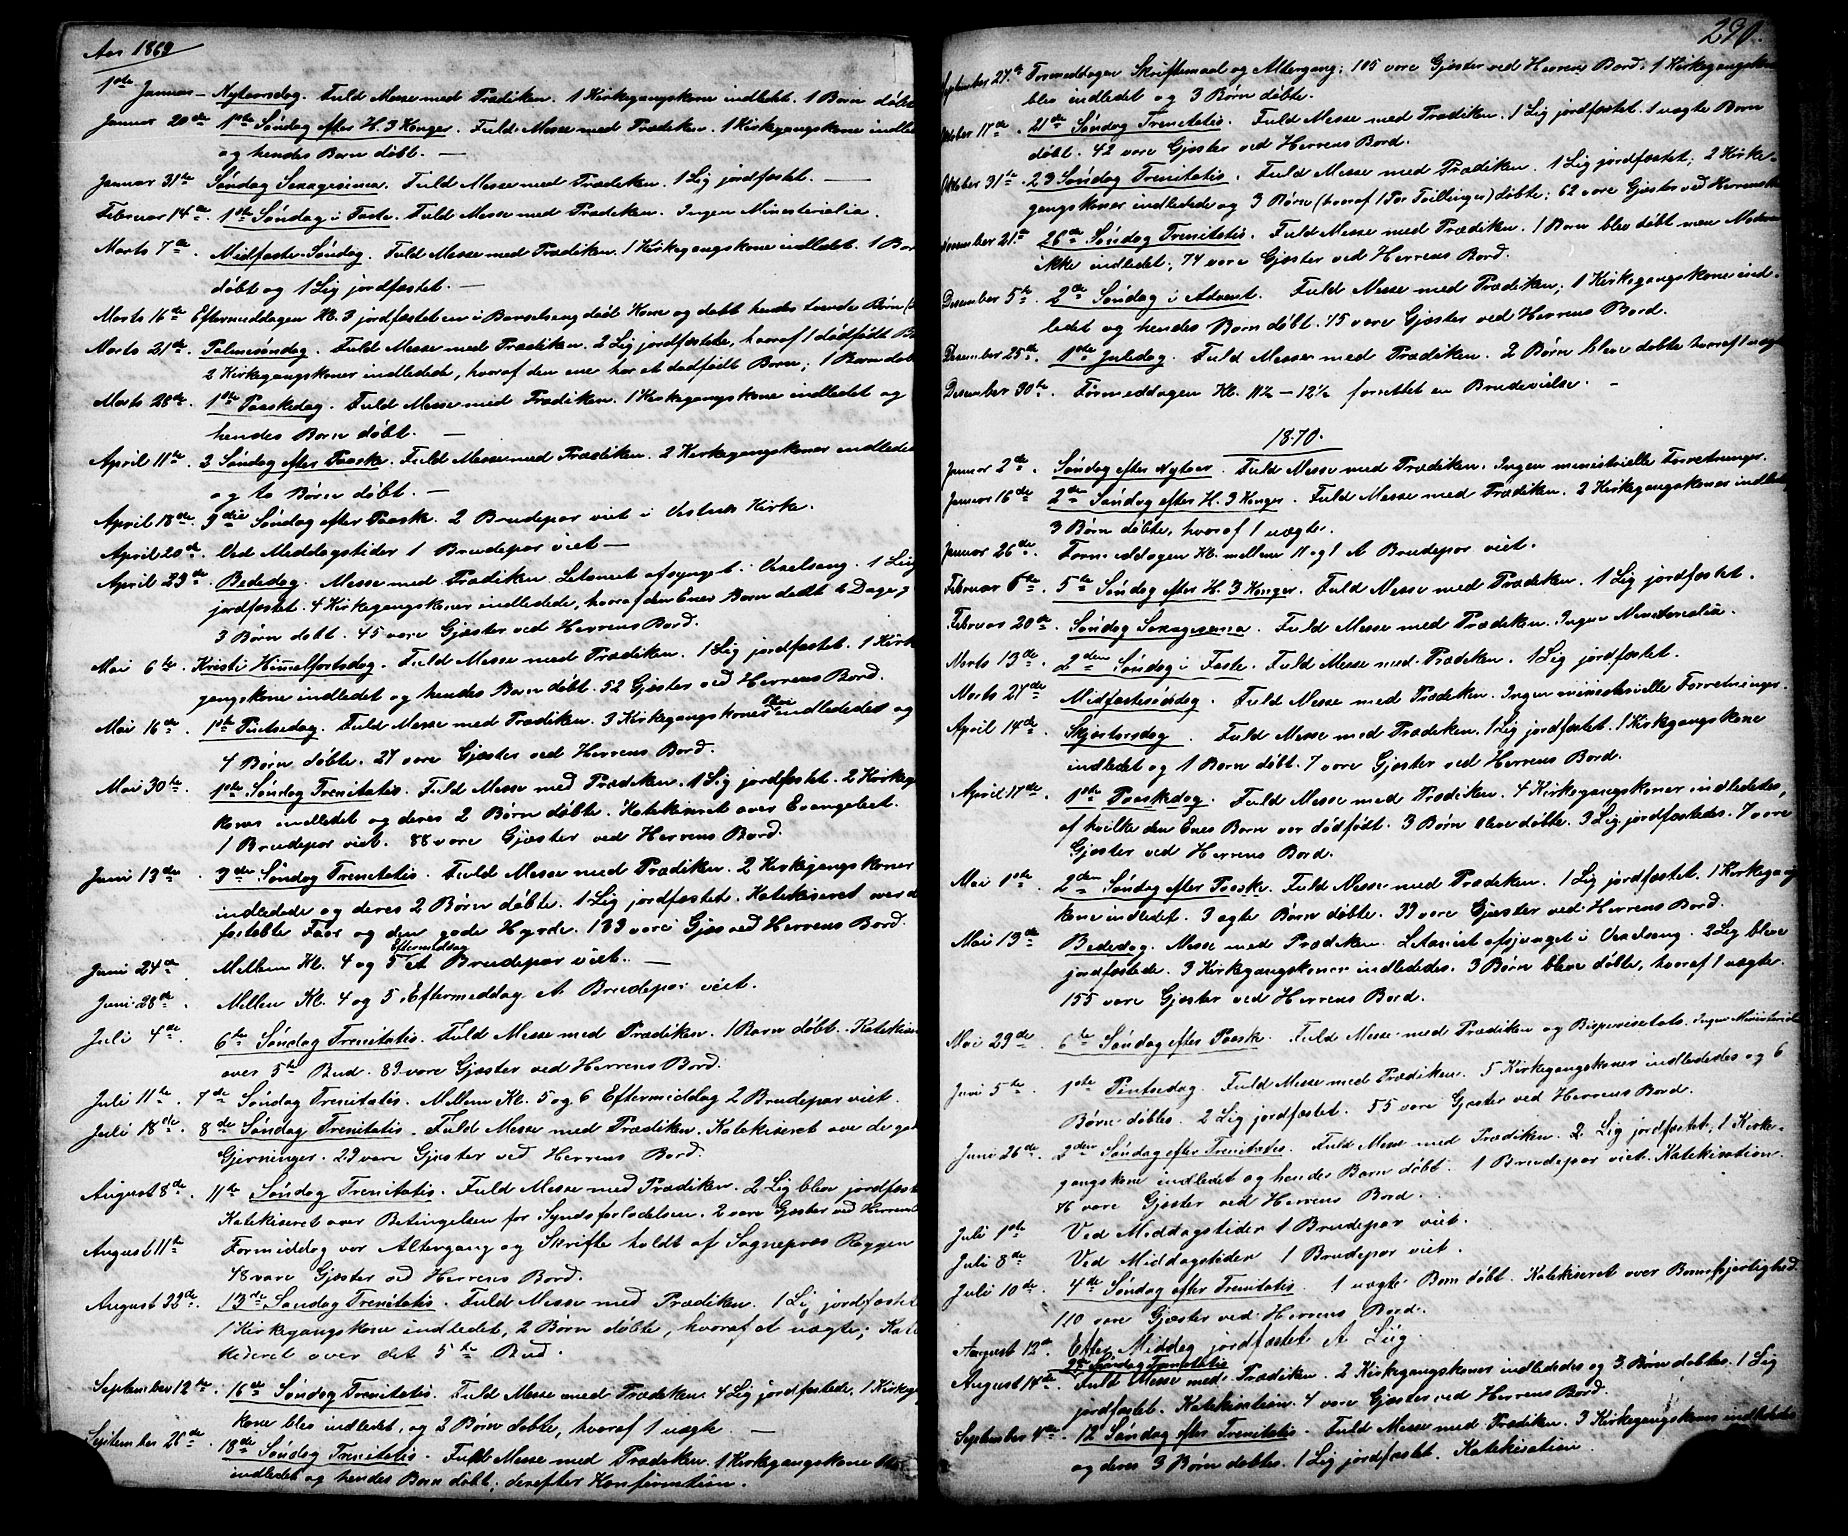 Aar 1869
1ste Januar – Nytaarsdag. Fuld Messe med Prædiken. 1 Kirkegangskone indledt. 1 Barn døbt
Januar 20de 1ste Søndag efter H. 3 Konger. Fuld Messe med Prædiken. 1 Kirkegangskone indled
og hendes Barn døbt. —
Januar 31te Søndag Sexagesima. Fuld Messe med Prædiken. 1 Lig jordfæstet. —
Februar 14de. 1ste Søndag i Faste. Fuld Messe med Prædiken. Ingen Ministerialia.
Marts 7de. Midfaste-Søndag. Fuld Messe med Prædiken. 1 Kirkegangskone indledet. 1 Bar
døbt og 1 Lig jordfæstet. —
Marts 16de Eftermiddagen Kl. 3 jordfæstet en i Barselseng død Kone og døbt hendes Børn
Marts 21de. Palmesøndag. Fuld Messe med Prædiken. 2 Lig jordfæstede, hvoraf 1 dødfødt B
2 Kirkegangskoner indledede, hvoraf den ene har et dødfødt Barn; 1 Barn døb
Marts 28de. 1ste Paaskedag. Fuld Messe med Prædiken. 1 Kirkegangskone indledet og
hendes Barn døbt. —
April 11te. 2 Søndag efter Paaske. Fuld Messe med Prædiken. 2 Kirkegangskoner indlede
og to Børn døbt. —
April 18de. 3die Søndag efter Paask. 2 Brudepar viet i Kirke.
April 20de. Ved Middagstider 1 Brudepar viet —
April 23de. Bededag. Messe med Prædiken. Letaniet afsynget. Vexelsang. 1 Liig
jordfæstet. 4 Kirkegangskoner indledede, hvoraf den Enes Barn dødt 6 Dage g
3 Børn døbt. 45 vare Gjæster ved Herrens Bord.
Mai 6te. Kristi Himmelfartsdag. Fuld Messe med Prædiken. 1 Lig jordfæstet. 1 Kirke
gangskone indledet og hendes Barn døbt. 52 Gjæster ved Herrens Bord.
Mai 16de. 1ste Pintsedag. Fuld Messe med Prædiken. 3 Kirkegangskoner bleve indledede og
4 Børn døbte. 27 vare Gjæster ved Herrens Bord.
Mai 30te. 1ste Søndag Trenitatis. Fuld Messe med Prædiken. 1 Lig jordfæstet. 2 Kirkeg
koner indledet og deres 2 Børn døbte. Katekiseret over Evangeliet.
1 Brudepar viet. 88 vare Gjæster ved Herrens Bord.
Juni 13de. 3de Søndag Trenitatis. Fuld Messe med Prædiken. 2 Kirkegangskoner
indledede og deres 2 Børn døbte. 1 Lig jordfæstet. Katekiseret over d
fortabte Faar og den gode Hyrde. 133 vare Gjæs ved Herrens Bord.
Juni 24de. Mellem Kl. 4 og 5 Eftermiddag et Brudepar viet. —
Juni 28de. Mellem Kl. 4 og 5 Eftermeddag et Brudepar viet.
Juli 4de. 6te Søndag Trenitatis. Fuld Messe med Prædiken. 1 Barn døbt. Katekise
over 5te Bud. 89 vare Gjæster ved Herrens Bord.
Juli 11te. 7de Søndag Trenitatis. Mellem Kl. 5 og 6 Eftermiddag 2 Brudepar viet.
Juli 18de. 8de Søndag Trenitatis. Fuld Messe med Prædiken. Katekiseret over de god
Gjerninger. 29 vare Gjæster ved Herrens Bord.
August 8de. 11te Søndag Trenitatis. Fuld Messe med Prædiken. 2 Lig blev jordfæst
Katekiseret over Betingelsen for Syndsforladelsen. 2 vare Gjæster ved Herrens
August 11te Formiddag var Altergang og Skrifte holdt af Sognepræs Roggen
48 vare Gjæster ved Herrens Bord.
August 22de. 13de Søndag Trenitatis. Fuld Messe med Prædiken. 1 Lig jordfæstet
1 Kirkegangskone indledet, 2 Børn døbte, hvoraf et uægte; Kate
kiseret over det 5te Bud.
September 12te. 16de Søndag Trenitatis. Fuld Messe med Prædiken. 4 Lig jordfæstede, 1 Kirkeg
kone blev indledet, og 2 Børn døbte, hvoraf 1 uægte —
September 26de. 18de Søndag Trenitatis. Fuld Messe med Prædiken. 1 Kirkegangskone blev
indledet og hendes Barn døbt; derefter Konfirmation.
290.
September 27de Formeddagen Skriftemaal og Altergang; 105 vare Gjæster ved Herrens Bord; 1 Kirkegangskone
blev indledet og 3 Børn døbte.
Oktober 17de. 21de Søndag Trenitatis. Fuld Messe med Prædiken. 1 Lig jordfæstet. 1 uægte Barn
døbt. 42 vare Gjæster ved Herrens Bord.
Oktober 31te. 23 Søndag Trenitatis. Fuld Messe med Prædiken. 1 Lig jordfæstet; 2 Kirke-
gangskoner indledede og 3 Børn (hvoraf 1 Par Tvillinger) døbte; 62 vare Gjæster ved Herrens
November 21te 26de Søndag Trenitatis. Fuld Messe med Prædiken. 1 Barn blev døbt men Moderen
ikke indledet; 74 vare Gjæster ved Herrens Bord.
Desember 5te. 2de Søndag i Advent. Fuld Messe med Prædiken; 1 Kirkegangskone ind-
ledet og hendes Barn døbt. 45 vare Gjæster ved Herrens Bord.
Desember 25de. 1ste Juledag. Fuld Messe med Prædiken. 2 Børn bleve døbte hvoraf 1 uægte
Desember 30te. Formeddagen Kl. 11½ – 12½ forrettet en Brudevielse. –
1870.
Januar 2de. Søndag efter Nytaar. Fuld Messe med Prædiken. Ingen ministrielle Forretninger.
Januar 16de 2den Søndag efter H. 3 Konger. Fuld Messe med Prædiken. 2 Kirkegangskoner indledet
3 Børn døbte, hvoraf 1 uægte.
Januar 26de. Formeddagen Kl. mellem 11 og 1 et Brudepar viet.
Februar 6te. 5te Søndag efter H. 3 Konger. Fuld Messe med Prædiken. 1 Lig jordfæstet.
Februar 20de. Søndag Sexagesima. Fuld Messe med Prædiken. Ingen Ministerialia.
Marts 13de. 2den Søndag i Faste. Fuld Messe med Prædiken. 1 Lig jordfæstet.
Marts 27de. Midfastesøndag. Fuld Messe med Prædiken. Ingen ministerielle Forretninger.
April 14de. Skjærtorsdag. Fuld Messe med Prædiken. 1 Lig jordfæstet. 1 Kirkegangskone
indledet og 1 Barn døbt. 7 vare Gjæster ved Herrens Bord.
April 17de. 1ste Paaskedag. Fuld Messe med Prædiken. 4 Kirkegangskoner indledetes,
af hvilke den Enes Barn var dødfødt. 3 Børn bleve døbte. 3 Lig jordfæstedes. 7 vare
Gjæster ved Herrens Bord.
Mai 1ste. 2den Søndag efter Paaske. Fuld Messe med Prædiken. 1 Lig jordfæstet. 1 Kirkegang
kone indledet. 3 ægte Børn døbte. 39 vare Gjæster ved Herrens Bord.
Mai 13de Bededag. Messe med Prædiken. Letaniet afsjunget i Vexelsang. 2 Lig bleve
jordfæstede. 3 Kirkegangskoner indledede. 3 Børn bleve døbte, hvoraf 1 uægte.
155 vare Gjæster ved Herrens Bord.
Mai 29de. 6te Søndag efter Paaske. Fuld Messe med Prædiken og Bispevisetats. Ingen Ministerialia
Juni 5te. 1ste Pintsedag. Fuld Messe med Prædiken. 5 Kirkegangskoner indledede og 6
Børn døbtes. 2 Lig jordfæstet. 55 vare Gjæster ved Herrens Bord.
Juni 26de. 2den Søndag efter Trenitatis. Fuld Messe med Prædiken. 2 Lig jordfæstet; 1 Kirke-
gangskone indledet og hendes Barn døbt. 1 Brudepar viet. Katekisation.
46 vare Gjæster ved Herrens Bord.
Juli 1ste. Ved Middagstider 1 Brudepar viet.
Juli 8de. Ved Middagstider 1 Brudepar viet.
Juli 10de. 4de Søndag efter Trenitatis. 1 uægte Barn døbt. Katekiseret over Barnekjærlighed.
110 vare Gjæster ved Herrens Bord.
August 12te. Efter Middag jordfæstet et Liig.
9de Søndag Trenitatis
August 14de. Fuld Messe med Prædiken. 2 Kirkegangskoner indledede og 3 Børn døbtes. 1 Lig
jordfæstet. Katekisation. 4 vare Gjæster ved Herrens Bord.
September 4de. 12 Søndag efter Trenitatis. Fuld Messe med Prædiken. 3 Kirkegangskoner indledetes
og deres 3 Børn døbtes. 1 Lig jordfæstet. Katekisation.